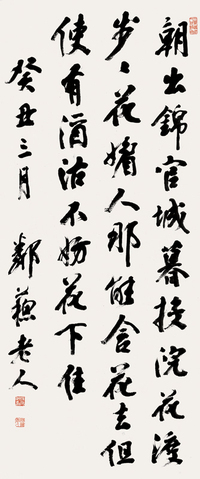 朝出錦官城暮投浣花渡
步々花媚人那能舍花去但
使有酒沽不妨花下住
癸丑三月 鄰蘇老人